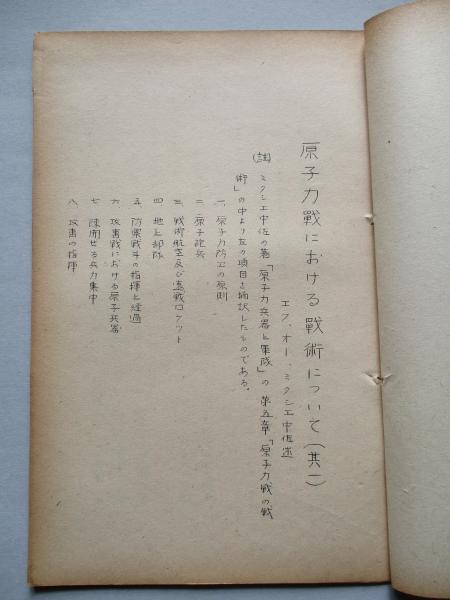 原子力戰における戰術について(其一)
エフ、オー、ミクシエ中佐述
(註) ミクシエ中佐の著「原子力兵器と軍隊」の第五章「原子力戰の戰
術」の中より左の項目を摘訳したものである。
一、原子力防卫の原則
二、原子砲兵
三、戰術航空及び宻戰ロケット
四、地上部隊
五、防禦戰斗の指揮と経過
六、攻撃戰における原子兵器
七、疎開せる兵力集中
八、攻撃の指揮